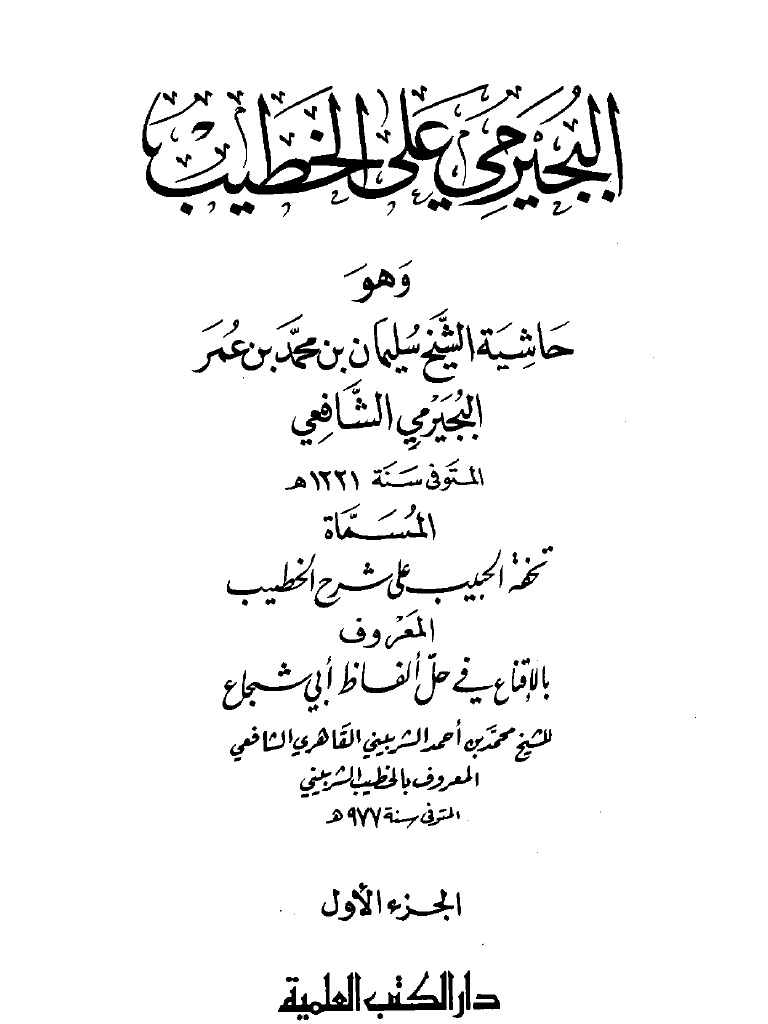 البُجَيْرَمِي عَلَى الخَطِيبْ
وَهوَ
حَاشِيَة الشَّيْخ سُليمَان بن محمَّد بن عُمَر
البُجَيْرَمِي الشَّافِعِي
المتَوفى سَنَة ١٢٢١ھ
المُسَمَّاة
تحفة الحبيب على شرح الخطيب
المعْرُوف
بالإقناع في حلّ ألفاظ أبي شجاع
للشيخ محمَّد بن أحمد الشربيني القَاهري الشافعي
المعروف بالخطيب الشربيني
المتوفى سنة ٩٧٧ھ
الجزء الأول
دار الكتب العلمية